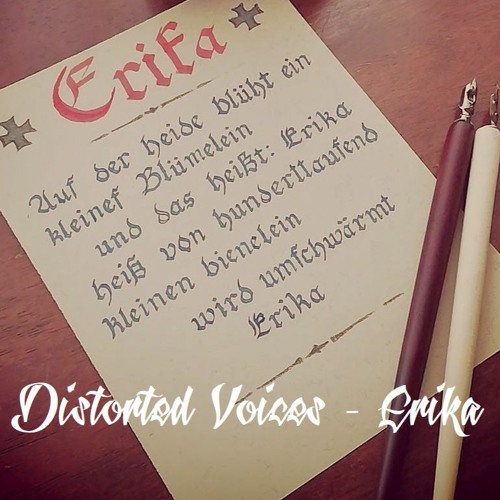 Erika
Auf der heide blüht ein
kleineſ Blümelein
und das heißt: Erika
heiß von hunderttauſend
kleinen bienelein
wird umſchwärmt
Erika
Distorted Voices - Erika